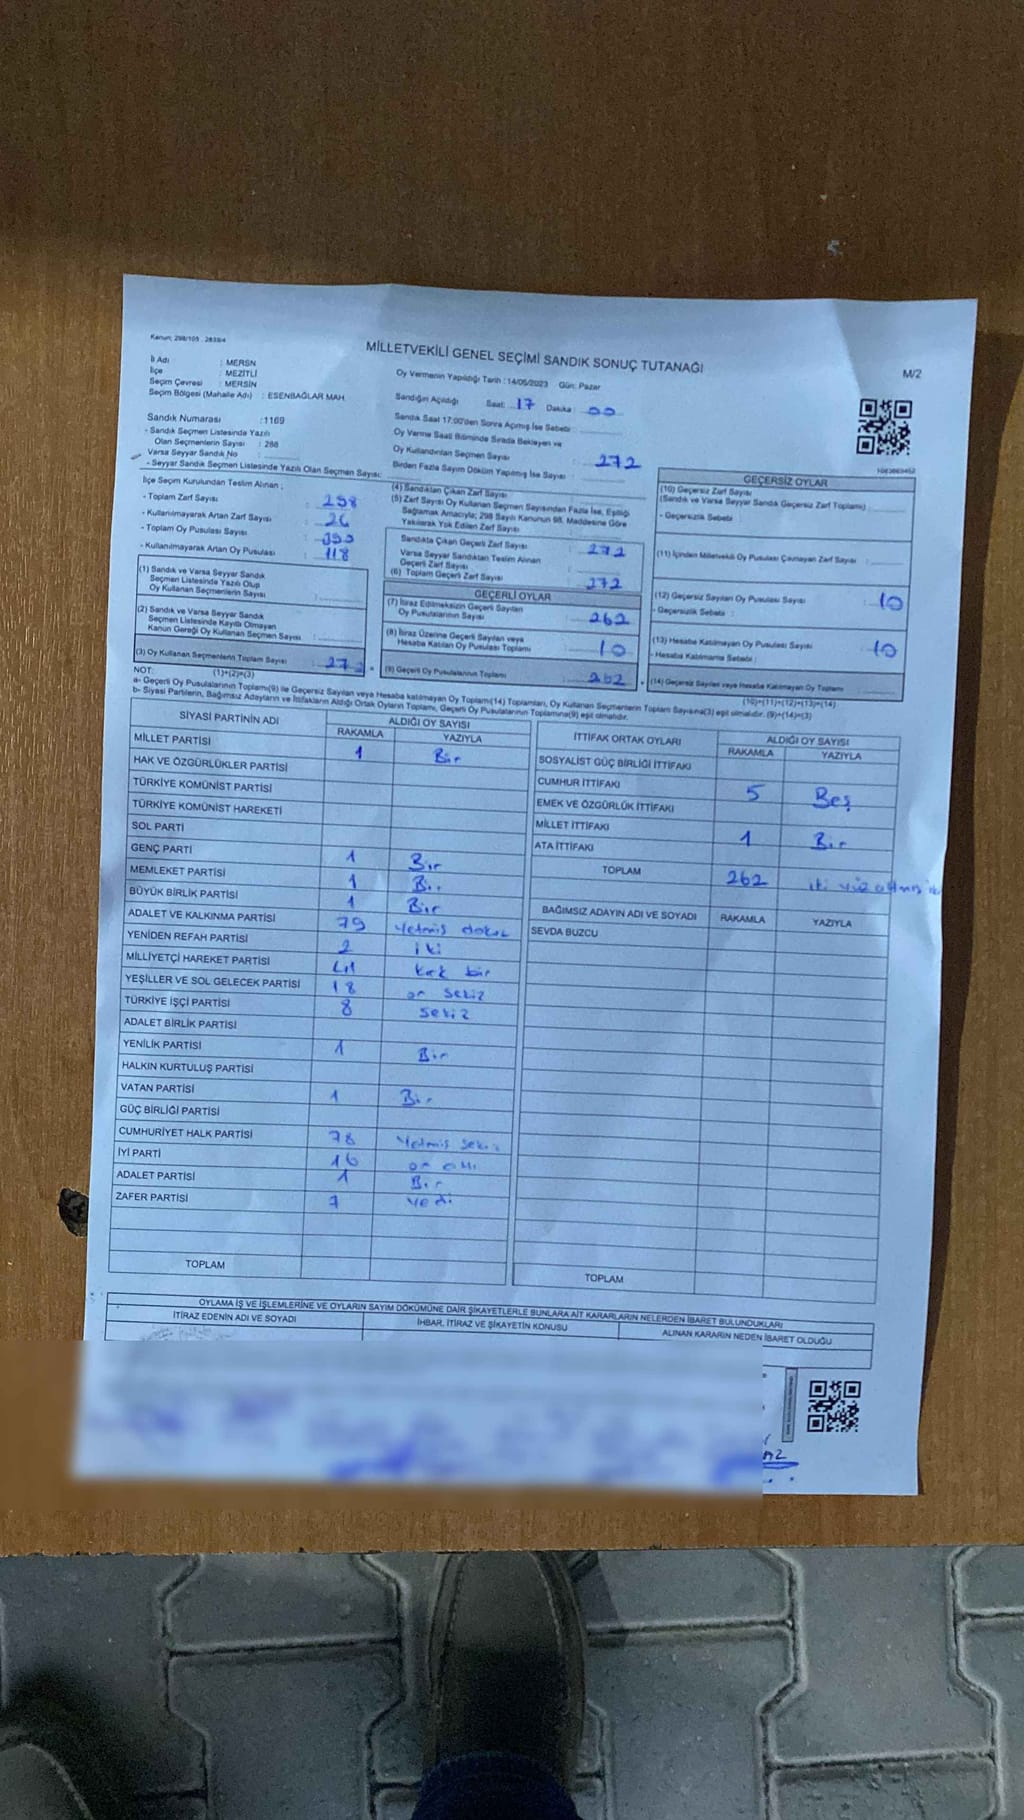 Kanun; 298/105 . 2839/4
MİLLETVEKİLİ GENEL SEÇİMİ SANDIK SONUÇ TUTANAĞI
M/2
İl Adı : MERSN
İlçe : MEZİTLİ
Seçim Çevresi : MERSİN
Seçim Bölgesi (Mahalle Adı) : ESENBAĞLAR MAH.
Oy Vermenin Yapıldığı Tarih : 14/05/2023 Gün: Pazar
Sandığın Açıldığı Saat: 17 Dakika : 00
Sandık Saat 17:00'den Sonra Açılmış İse Sebebi :
Oy Verme Saati Bitiminde Sırada Bekleyen ve
Oy Kullandırılan Seçmen Sayısı : 272
Birden Fazla Sayım Döküm Yapılmış İse Sayısı :
Sandık Numarası :1169
- Sandık Seçmen Listesinde Yazılı
Olan Seçmenlerin Sayısı : 288
Varsa Seyyar Sandık No :
- Seyyar Sandık Seçmen Listesinde Yazılı Olan Seçmen Sayısı:
İlçe Seçim Kurulundan Teslim Alınan ;
- Toplam Zarf Sayısı : 298
- Kullanılmayarak Artan Zarf Sayısı : 26
- Toplam Oy Pusulası Sayısı :
- Kullanılmayarak Artan Oy Pusulası : 118
(1) Sandık ve Varsa Seyyar Sandık
Seçmen Listesinde Yazılı Olup
Oy Kullanan Seçmenlerin Sayısı :
(2) Sandık ve Varsa Seyyar Sandık
Seçmen Listesinde Kayıtlı Olmayan
Kanun Gereği Oy Kullanan Seçmen Sayısı :
(3) Oy Kullanan Seçmenlerin Toplam Sayısı : 272
(1)+(2)=(3)
(4) Sandıktan Çıkan Zarf Sayısı :
(5) Zarf Sayısı Oy Kullanan Seçmen Sayısından Fazla İse, Eşitliği
Sağlamak Amacıyla; 298 Sayılı Kanunun 98. Maddesine Göre
Yakılarak Yok Edilen Zarf Sayısı :
Sandıkta Çıkan Geçerli Zarf Sayısı : 272
Varsa Seyyar Sandıktan Teslim Alınan
Geçerli Zarf Sayısı :
(6) Toplam Geçerli Zarf Sayısı : 272
GEÇERLİ OYLAR
(7) İtiraz Edilmeksizin Geçerli Sayılan
Oy Pusulalarının Sayısı : 262
(8) İtiraz Üzerine Geçerli Sayılan veya
Hesaba Katılan Oy Pusulası Toplamı : 10
(9) Geçerli Oy Pusulalarının Toplamı : 262
GEÇERSİZ OYLAR
(10) Geçersiz Zarf Sayısı
(Sandık ve Varsa Seyyar Sandık Geçersiz Zarf Toplamı) :
- Geçersizlik Sebebi :
(11) İçinden Milletvekili Oy Pusulası Çıkmayan Zarf Sayısı :
(12) Geçersiz Sayılan Oy Pusulası Sayısı : 10
- Geçersizlik Sebebi :
(13) Hesaba Katılmayan Oy Pusulası Sayısı : 10
- Hesaba Katılmama Sebebi :
(14) Geçersiz Sayılan veya Hesaba Katılmayan Oy Toplamı :
(10)+(11)+(12)+(13)=(14)
NOT:
a- Geçerli Oy Pusulalarının Toplamı(9) ile Geçersiz Sayılan veya Hesaba katılmayan Oy Toplam(14) Toplamları, Oy Kullanan Seçmenlerin Toplam Sayısına(3) eşit olmalıdır. (9)+(14)=(3)
b- Siyasi Partilerin, Bağımsız Adayların ve İttifakların Aldığı Ortak Oyların Toplamı, Geçerli Oy Pusulalarının Toplamına(9) eşit olmalıdır.
SİYASİ PARTİNİN ADI ALDIĞI OY SAYISI
RAKAMLA YAZIYLA
MİLLET PARTİSİ 1 Bir
HAK VE ÖZGÜRLÜKLER PARTİSİ
TÜRKİYE KOMÜNİST PARTİSİ
TÜRKİYE KOMÜNİST HAREKETİ
SOL PARTİ
GENÇ PARTİ 1 Bir
MEMLEKET PARTİSİ 1 Bir
BÜYÜK BİRLİK PARTİSİ 1 Bir
ADALET VE KALKINMA PARTİSİ 79 Yetmiş dokuz
YENİDEN REFAH PARTİSİ 2 iki
MİLLİYETÇİ HAREKET PARTİSİ 41 kırk bir
YEŞİLLER VE SOL GELECEK PARTİSİ 18 on sekiz
TÜRKİYE İŞÇİ PARTİSİ 8 sekiz
ADALET BİRLİK PARTİSİ
YENİLİK PARTİSİ 1 Bir
HALKIN KURTULUŞ PARTİSİ
VATAN PARTİSİ 1 Bir
GÜÇ BİRLİĞİ PARTİSİ
CUMHURİYET HALK PARTİSİ 78 Yetmiş sekiz
İYİ PARTİ 16 on altı
ADALET PARTİSİ 1 Bir
ZAFER PARTİSİ 7 yedi
TOPLAM
İTTİFAK ORTAK OYLARI ALDIĞI OY SAYISI
RAKAMLA YAZIYLA
SOSYALİST GÜÇ BİRLİĞİ İTTİFAKI
CUMHUR İTTİFAKI 5 Beş
EMEK VE ÖZGÜRLÜK İTTİFAKI
MİLLET İTTİFAKI 1 Bir
ATA İTTİFAKI
TOPLAM 262 iki yüz altmış iki
BAĞIMSIZ ADAYIN ADI VE SOYADI RAKAMLA YAZIYLA
SEVDA BUZCU
TOPLAM
OYLAMA İŞ VE İŞLEMLERİNE VE OYLARIN SAYIM DÖKÜMÜNE DAİR ŞİKAYETLERLE BUNLARA AİT KARARLARIN NELERDEN İBARET BULUNDUKLARI
İTİRAZ EDENİN ADI VE SOYADI İHBAR, İTİRAZ VE ŞİKAYETİN KONUSU ALINAN KARARIN NEDEN İBARET OLDUĞU